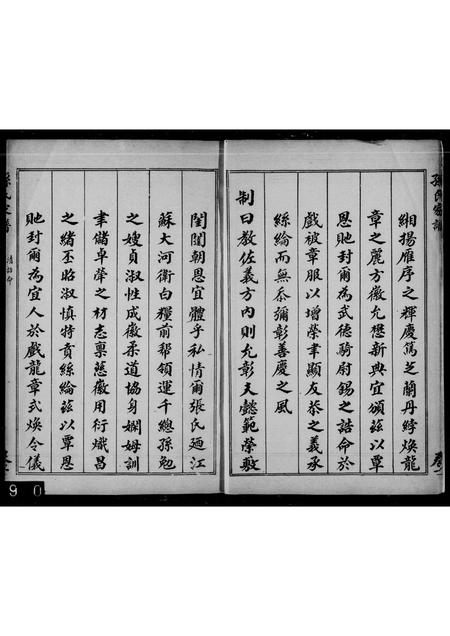 孫氏家譜
緗揚雁序之輝慶篤芝蘭丹綍煥龍
章之麗方徽允懋新典宜頒茲以覃
恩貤封爾為武德騎尉錫之誥命於
戲被章服以增榮聿顯友恭之義承
絲綸而無忝彌彰善慶之風
制曰教佐義方內則允彰夫懿範榮敷
閨闈朝恩宜體乎私情爾張氏廼江
蘇大河衛白糧前幫領運千總孫勉
之嫂貞淑性成徽柔道協身嫻姆訓
聿儲卓犖之材志稟慈徽用衍熾昌
之緒丕昭淑慎特賁絲綸茲以覃恩
貤封爾為宜人於戲龍章式煥令儀
孫氏家譜
清誥命
9 0